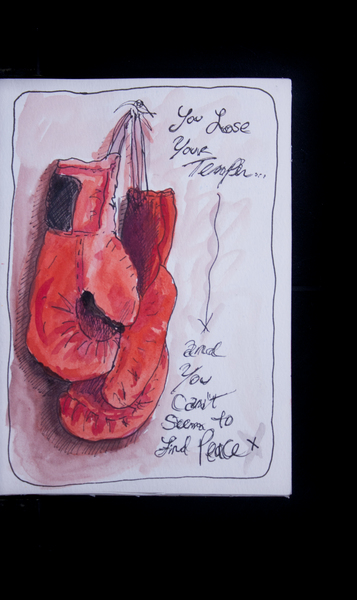 You Lose
Your
Temper...
and
You
Can't
Seem to
find Peace x